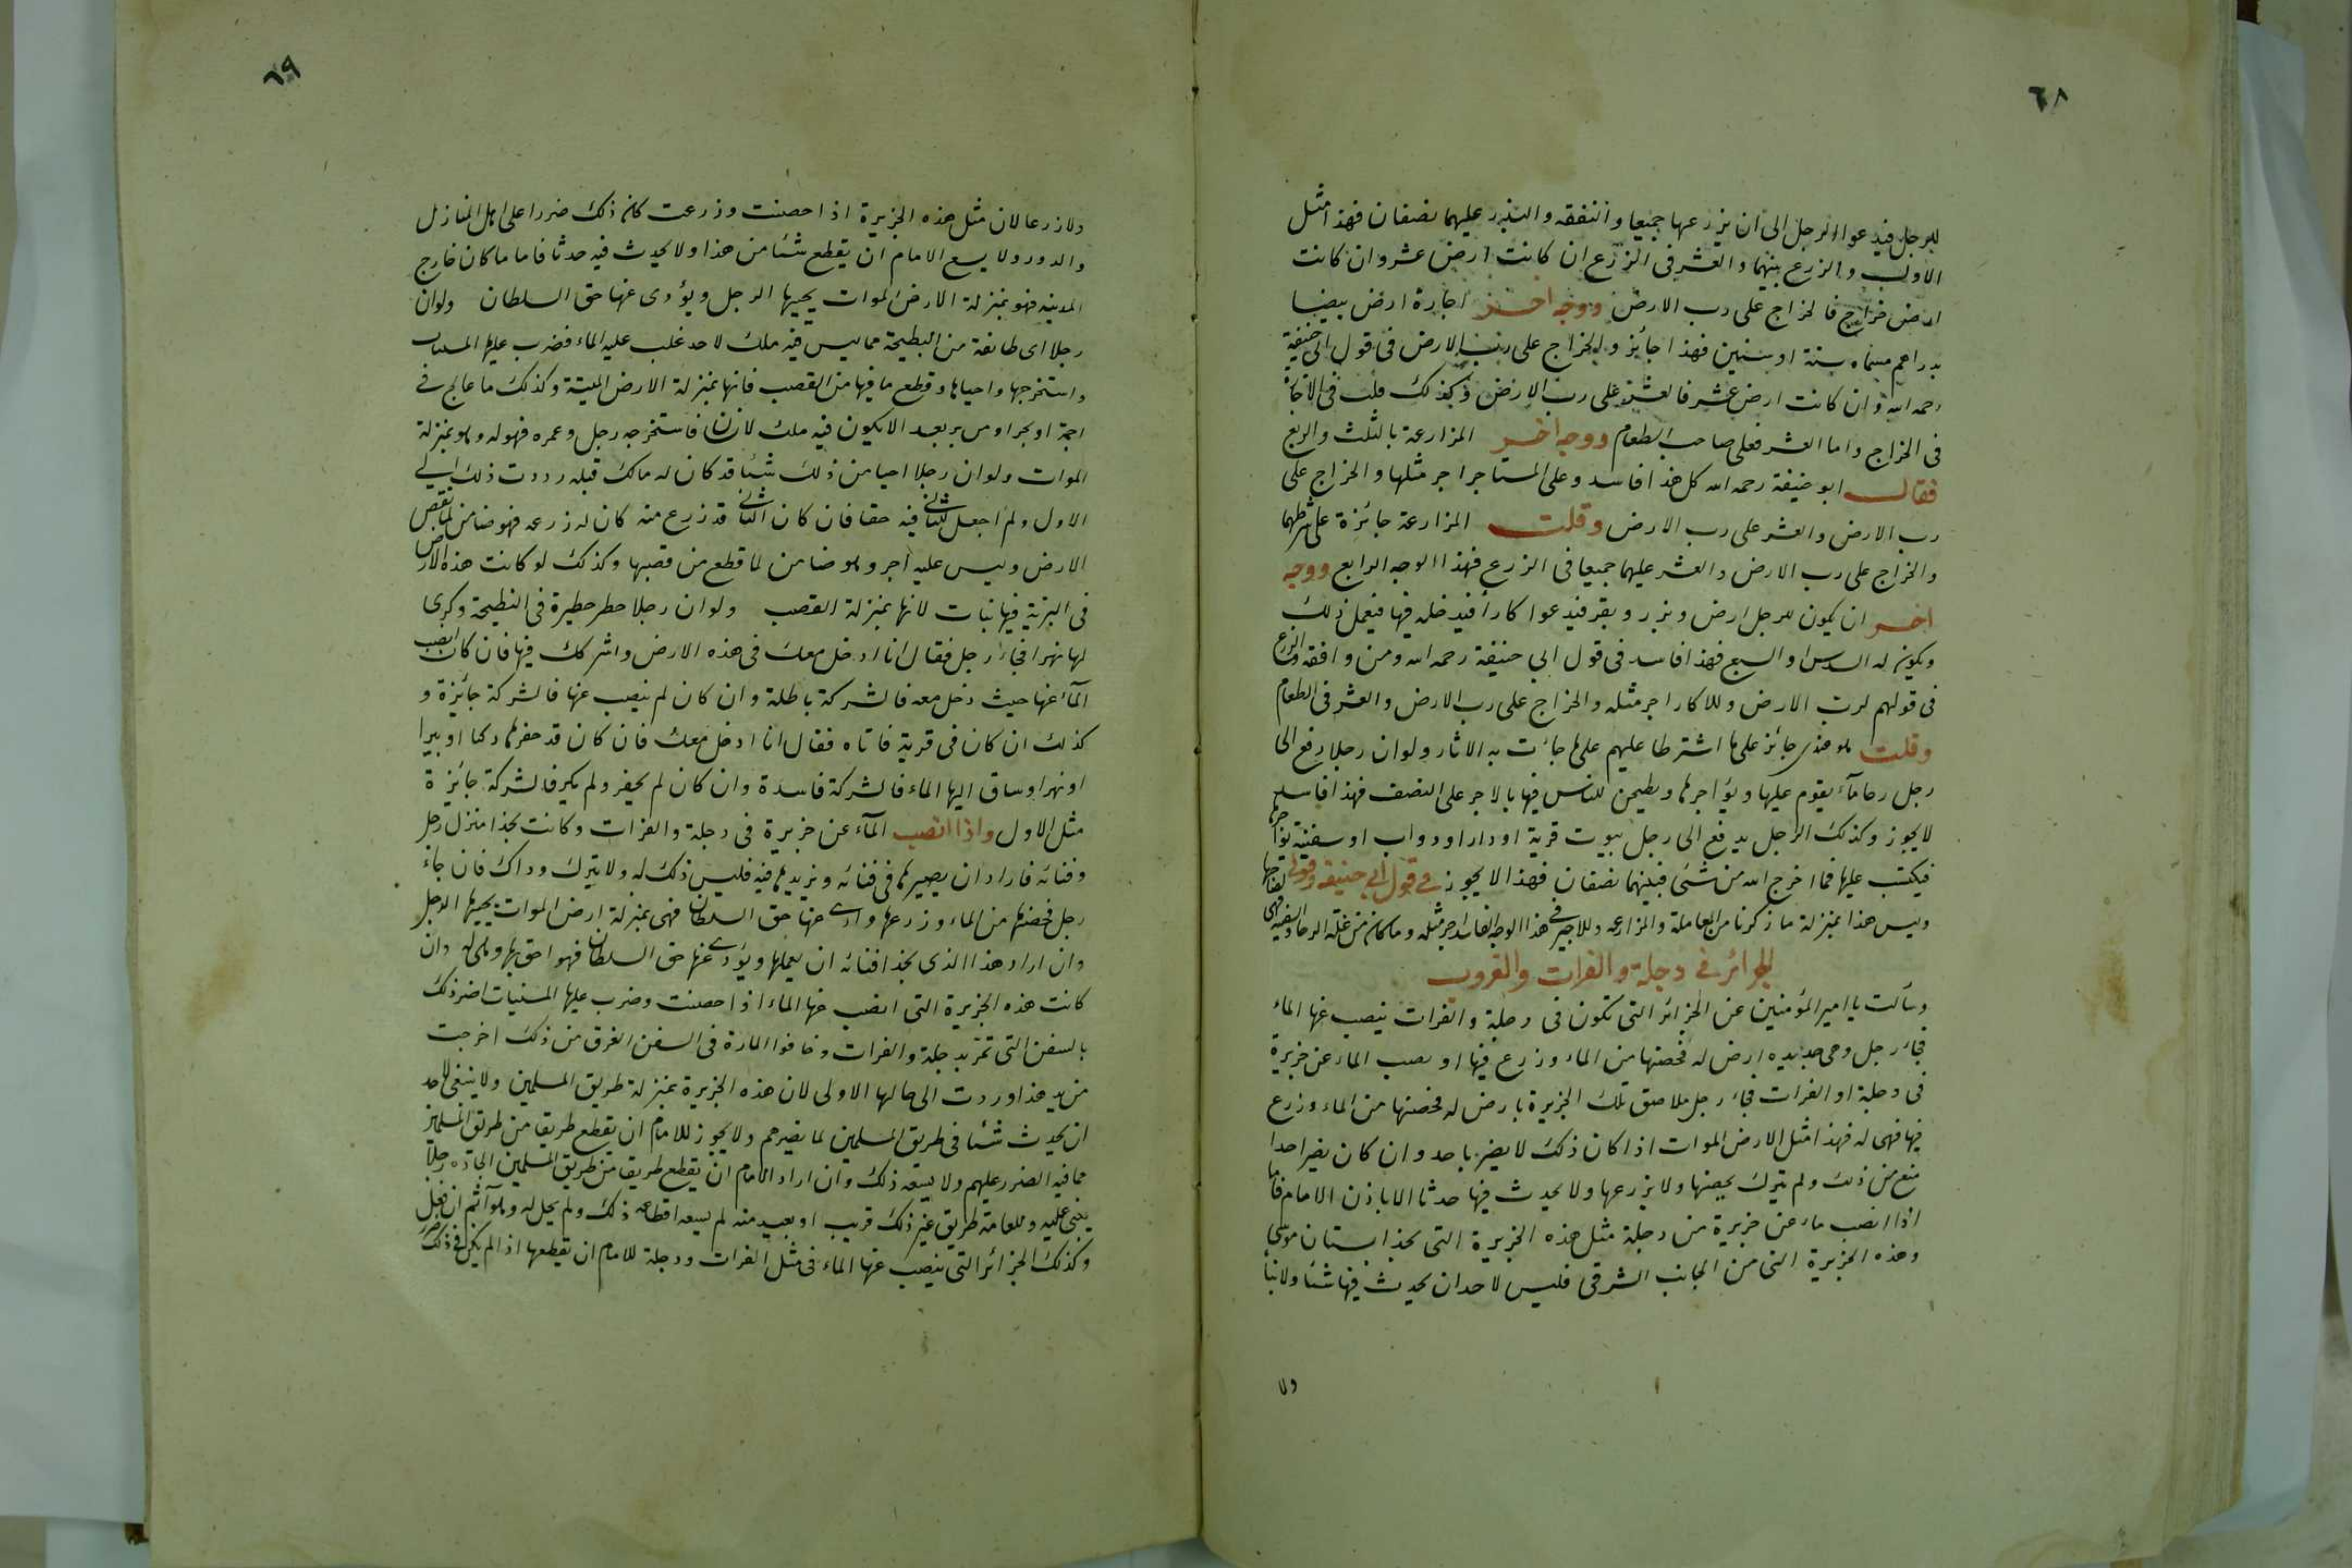 ٦٨
للرجل فيدعوا الرجل الى ان يزرعها جميعا والنفقه والبذر عليهما نصفان فهذا مثل
الاول والزرع بينهما والعشر فى الزرع ان كانت ارض عشر وان كانت
ارض خراج فالخراج على رب الارض ووجه اخر اجارة ارض بيضا
بدراهم مسماه سنة او سنين فهذا جائز والخراج على رب الارض فى قول ابى حنيفة
رحمه الله وان كانت ارض عشر فالعشر على رب الارض وكذلك قلت فى الاجارة
فى الخراج واما العشر فعلى صاحب الطعام ووجه اخر المزارعة بالثلث والربع
فقال ابو حنيفة رحمه الله كل هذا فاسد وعلى المستاجر اجر مثلها والخراج على
رب الارض والعشر على رب الارض وقلت المزارعة جائزة على شرطهما
والخراج على رب الارض والعشر عليهما جميعا فى الزرع فهذا الوجه الرابع ووجه
اخر ان يكون للرجل ارض وبزر وبقر فيدعوا كارا فيدخله فيها فيعمل ذلك
ويكون له السدس او السبع فهذا فاسد فى قول ابي حنيفة رحمه الله ومن وافقه والزرع
فى قولهم لرب الارض وللاكار اجر مثله والخراج على رب الارض والعشر فى الطعام
وقلت هو عندى جائز على ما اشترطا عليهم على ما جآت به الاثار ولوان رجلا دفع الى
رجل رحا مآء يقوم عليها ويؤاجرها ويطحن للناس فيها بالاجر على النصف فهذا فاسد
لا يجوز وكذلك الرجل يدفع الى رجل بيوت قرية او دار او دواب او سفينة يؤاجرها
فيكتسب عليها فما اخرج الله من شئى فبينهما نصفان فهذا لا يجوز فى قول ابي حنيفه وقولى
وليس هذا بمنزلة ما ذكرنا من المعاملة والمزارعه وللاجير فى هذا الوجه الفاسد اجر مثله وما كان من غلة الرحا والسفينه فهى لصاحبها
الجزائر فى دجلة والفرات والغروب
وسألت يا امير المؤمنين عن الجزائر التى تكون فى دجلة والفرات ينصب عنها الماء
فجاء رجل وهى جديده ارض له فحصنها من الماء وزرع فيها او نصب الماء عن جزيرة
فى دجلة او الفرات فجاء رجل ملاصق تلك الجزيرة بارض له فحصنها من الماء وزرع
فيها فهى له فهذا مثل الارض الموات اذا كان ذلك لا يضر باحد وان كان يضر احدا
منع من ذلك ولم يترك يحصنها ولا يزرعها ولا يحدث فيها حدثا الا باذن الامام فاما
اذا انصب ماء عن جزيرة من دجلة مثل هذه الجزيرة التى بحذا بستان موسى
وهذه الجزيرة التى من الجانب الشرقى فليس لاحد ان يحدث فيها شئا ولا بنآ
ولا
٦٩
ولا زرعا لان مثل هذه الجزيرة اذا حصنت وزرعت كان ذلك ضررا على اهل المنازل
والدور ولا يسع الامام ان يقطع شئا من هذا ولا يحدث فيه حدثا فاما ما كان خارج
المدينه فهو بمنزلة الارض الموات يحييها الرجل ويؤدى عنها حق السلطان ولوان
رجلا اى طائفة من البطيحة مما ليس فيه ملك لاحد غلب عليه الماء فضرب عليها المسنيات
واستخرجها واحياها وقطع ما فيها من القصب فانها بمنزلة الارض الميتة وكذلك ما عالج فى
اجمة او بحر او من بر بعد الا يكون فيه ملك لانسان فاستخرجه رجل وعمره فهو له وهو بمنزلة
الموات ولوان رجلا احيا من ذلك شئا قد كان له مالك قبله رددت ذلك الى
الاول ولم اجعل للثانى فيه حقا فان كان الثانى قد زرع منه كان له زرعه فهو ضامن لما نقص
الارض وليس عليه اجر وهو ضامن لما قطع من قصبها وكذلك لو كانت هذه الارض
فى البرية فيها نبات لانها بمنزلة القصب ولوان رجلا حطر حطيرة فى البطيحة وكرى
لها نهرا فجاء رجل فقال انا ادخل معك فى هذه الارض واشركك فيها فان كان انصب
المآء عنها حيث دخل معه فالشركة باطلة وان كان لم ينصب عنها فالشركة جائزة و
كذلك ان كان فى قرية فاتاه فقال انا ادخل معك فان كان قد حفر لها ركيا او بيرا
او نهرا وساق اليها الماء فالشركة فاسدة وان كان لم يحفر ولم يكر فالشركة جايزة
مثل الاول واذا انصب المآء عن جزيرة فى دجلة والفرات وكانت بحذا منزل رجل
وفنائه فاراد ان يصيرها فى فنائه ويزيدها فيه فليس ذلك له ولا يترك وذاك فان جاء
رجل فحصنها من الماء وزرعها وادى عنها حق السلطان فهى بمنزلة ارض الموات يحييها الرجل
وان اراد هذا الذى بحذا فنائه ان يعملها ويؤدى عنها حق السلطان فهو احق بها وهى له وان
كانت هذه الجزيرة التى انصب عنها الماء اذا حصنت وضرب عليها المسنيات اضر ذلك
بالسفن التى تمر بدجلة والفرات وخافوا المارة فى السفن الغرق من ذلك اخرجت
من يد هذا وردت الى حالها الاولى لان هذه الجزيرة بمنزلة طريق المسلمين ولا ينبغى لاحد
ان يحدث شئا فى طريق المسلمين لما يضرهم ولا يجوز للامام ان يقطع طريقا من طريق المسلمين
مما فيه الضرر عليهم ولا يسعه ذلك وان اراد الامام ان يقطع طريقا من طريق المسلمين الجاده رجلا
يبنى عليه وللعامة طريق غير ذلك قريب او بعيد منه لم يسعه اقطاعه ذلك ولم يحل له وهو آثم ان فعل
وكذلك الجزائر التى ينصب عنها الماء فى مثل الفرات ودجلة للامام ان يقطعها اذا لم يكن فى ذلك ضرر